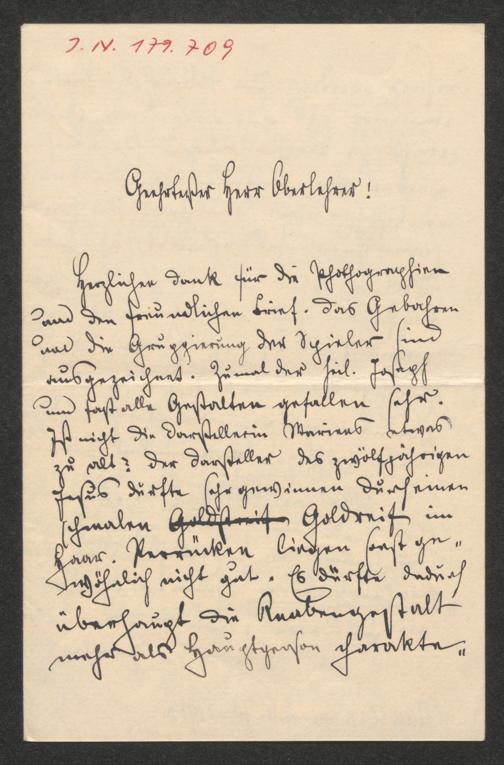 J. N. 179.709
Geehrtester Herr Oberlehrer!
Herzlichen Dank für die Phothographien
und den freundlichen Brief. Das Gebahren
und die Gruppierung der Spieler sind
ausgezeichnet. Zumal der heil. Joseph
und fast alle Gestalten gefallen sehr.
Ist nicht die Darstellerin Mariens etwas
zu alt? Der Darsteller des zwölfjährigen
Jesus dürfte sehr gewinnen durch einen
schmalen Goldstreif Goldreif im
Haar. Perrücken liegen sonst ge„
wöhnlich nicht gut. Es dürfte dadurch
überhaupt die Knabengestalt
mehr als Hauptperson charakte„